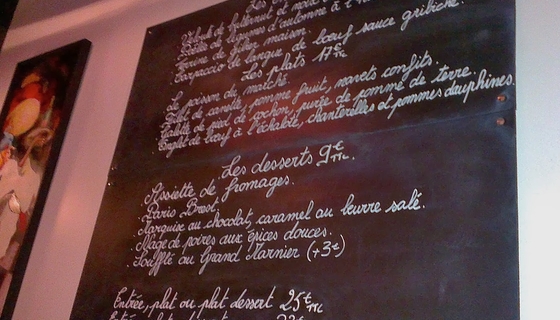 Les
Velouté de butternut et noix
Poêlée de légumes d'automne à l'
Terrine de gibier maison.
Carpaccio de langue de bœuf sauce gribiche.
Les plats 17€
Le poisson du marché.
Filet de canette, pomme fruit, navets confits.
Palette de pied de cochon, purée de pomme de terre.
Onglet de bœuf à l'échalote, chanterelles et pommes dauphines.
Les desserts 9€ TTC.
Assiette de fromages.
. Paris Brest.
Marquise au chocolat, caramel au beurre salé.
. Nage de poires aux épices douces.
. Soufflé au Grand Marnier (+3€)
Entrée, plat ou plat dessert 25€ TTC